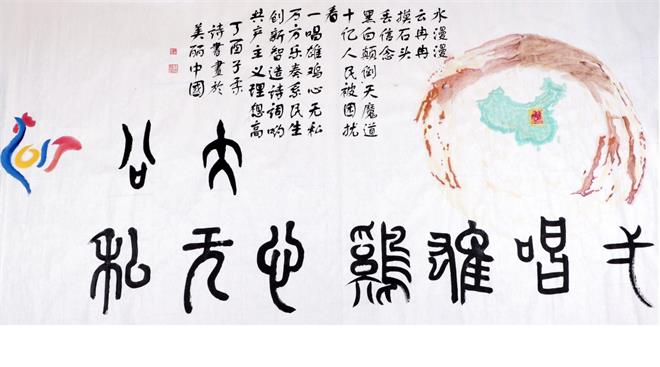 水漫漫
云冉冉
摸石头
丢信念
黑白颠倒天魔道
十亿人民被困扰
看
一唱雄鸡心无私
万方乐奏系民生
创新智造诗词哟
共产主义理想高
丁酉子季
诗书畫於
美丽中國
公
唱雄鷄心无私
2017